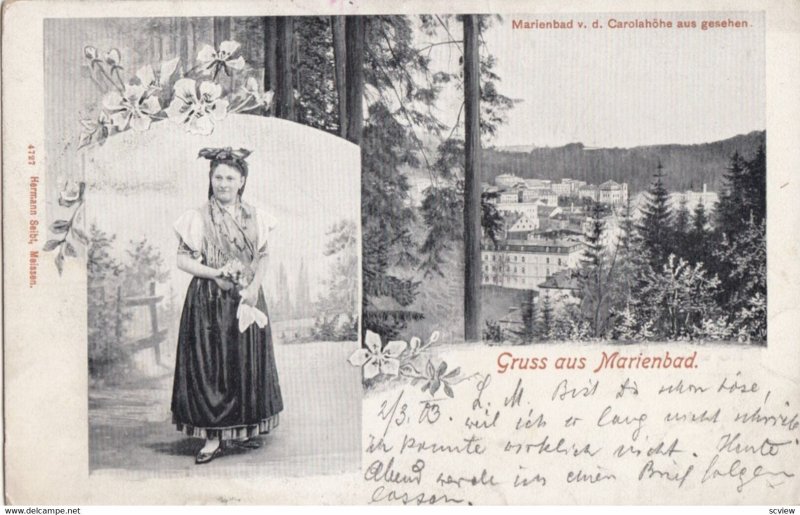 Marienbad v. d. Carolahöhe aus gesehen.
4727 Hermann Seibt, Meissen.
Gruss aus Marienbad.
2/3. 03. L. M. Bist Du schon böse,
weil ich so lang nicht schrieb
ich konnte wirklich nicht. Heute
Abend werde ich einen Brief folgen
lassen
scview